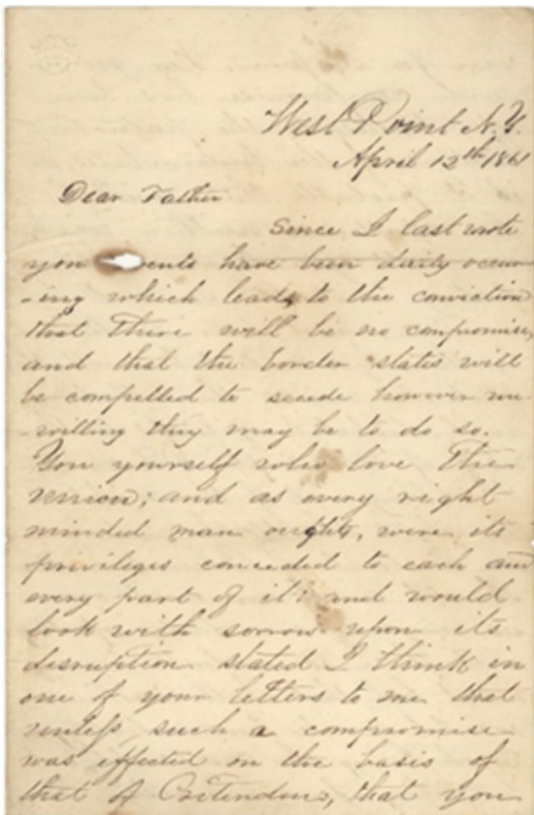 West Point N.Y.
April 12th 1861
Dear Father
Since I last wrote
you ents have been daily occur
-ing which leads to the conviction
that there will be no compromise,
and that the border states will
be compelled to secede however un
-willing they may be to do so.
You yourself who love the
Union; and as every right
minded man ought, were its
privileges conceded to each and
every part of it: and would
look with sorrow upon its
disruption stated I think in
one of your letters to me that
unless such a compromise
was effected on the basis of
that of Crittenden, that you